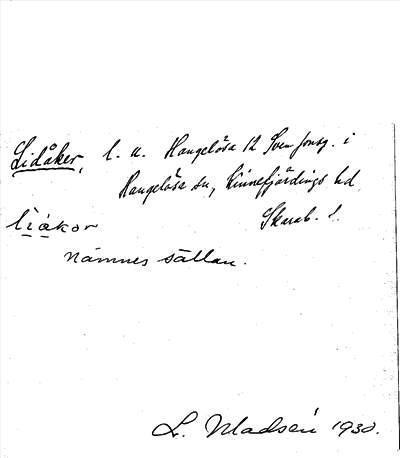 Lidåker, l. u. Hangelösa 12 Svensong. i
Hangelösa sn, Kinnefjärdings hd
Skarab. l.
liåkor
nämnes sällan.
L. Madsén 1930.